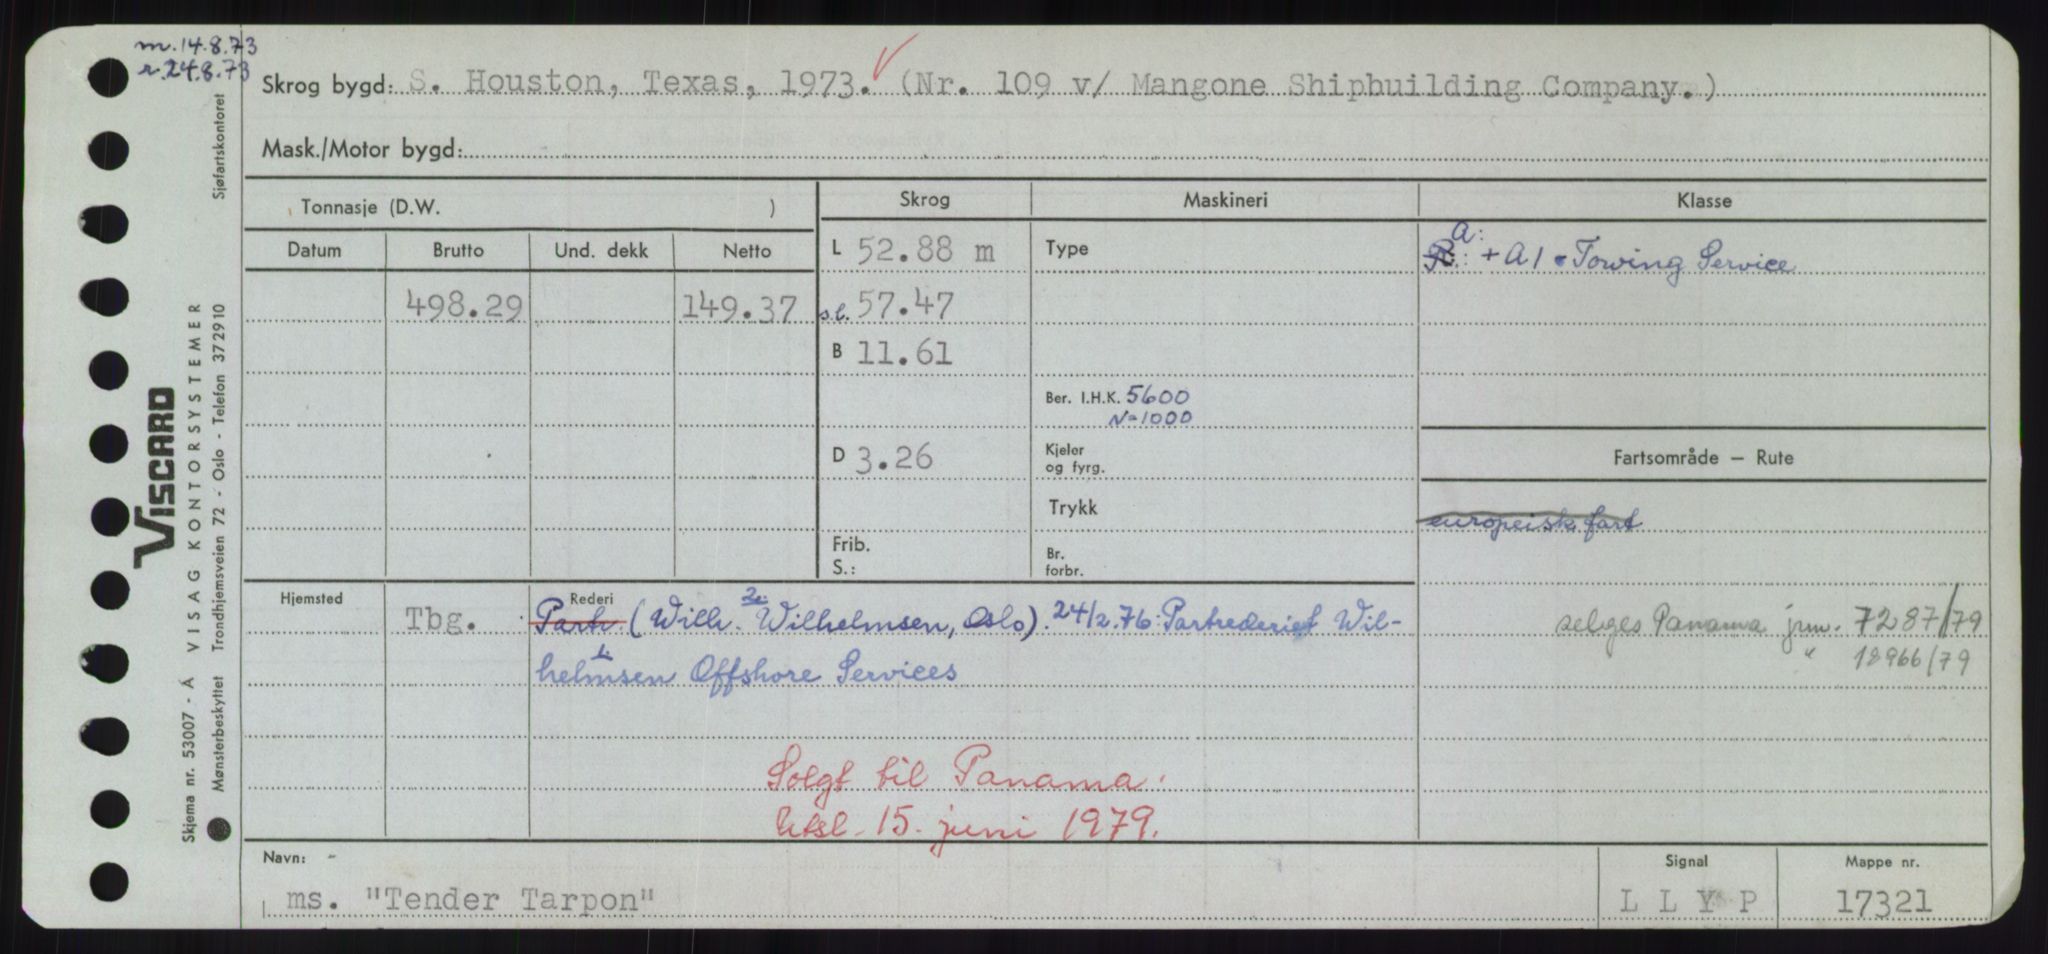 m. 14.8.73
r. 24.8.73
Skrog bygd: S. Houston, Texas, 1973. (Nr. 109 v/ Mangone Shipbuilding Company.)
Mask./Motor bygd:
Tonnasje (D.W. )
Skrog
Maskineri
Klasse
Datum
Brutto
Und. dekk
Netto
L 52.88 m
Type
A:
R.: + A 1 • Towing Service
498.29
149.37
s.l. 57.47
B 11.61
Ber. I.H.K. 5600
N=1000
D 3.26
Kjeler
og fyrg.
Fartsområde — Rute
Trykk
europeisk fart
Frib.
S.:
Br.
forbr.
Hjemsted
Tbg.
Rederi
Partr. (Wilh. 2. Wilhelmsen, Oslo). 24/2.76: Partrederiet Wil-
helmsen Offshore Services
selges Panama jnr. 7287/79
" 18966/79
Solgt til Panama.
Utsl. 15. juni 1979.
Navn: -
ms. "Tender Tarpon"
Signal
L L Y P
Mappe nr.
17321
Viscard
VISAG KONTORSYSTEMER
Sjøfartskontoret
Skjema nr. 53007 - Å
Mønsterbeskyttet Trondhjemsveien 72 - Oslo - Telefon 372910